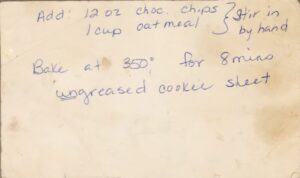 Add: 12 oz choc. chips } Stir in
1 cup oatmeal } by hand
Bake at 350° for 8 mins
ungreased cookie sheet